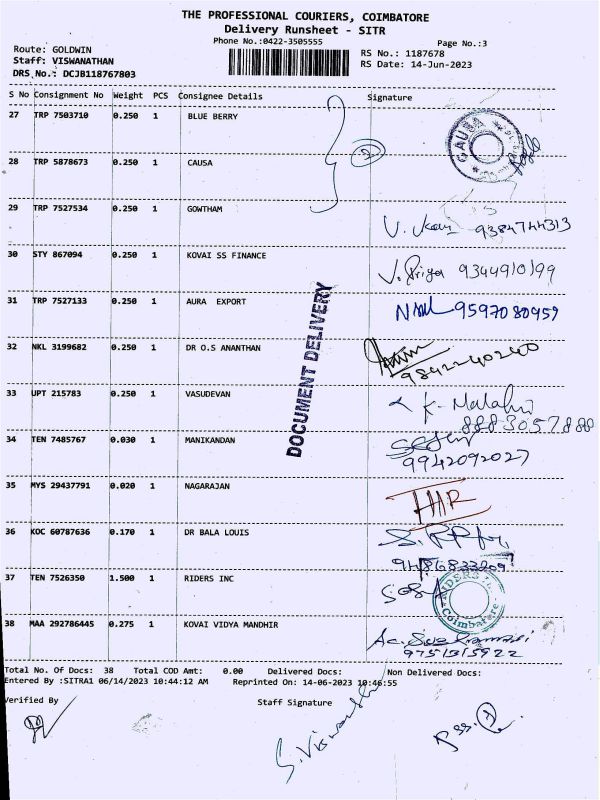 THE PROFESSIONAL COURIERS, COIMBATORE
Delivery Runsheet - SITR
Phone No.:0422-3505555 Page No.:3
Route: GOLDWIN RS No.: 1187678
Staff: VISWANATHAN RS Date: 14-Jun-2023
DRS No.: DCJB118767803
S No Consignment No Weight PCS Consignee Details Signature
27 TRP 7503710 0.250 1 BLUE BERRY
CAUSA
28 TRP 5878673 0.250 1 CAUSA
29 TRP 7527534 0.250 1 GOWTHAM
9384744313
30 STY 867094 0.250 1 KOVAI SS FINANCE
V. Priya 9344910199
31 TRP 7527133 0.250 1 AURA EXPORT
9597080959
DOCUMENT DELIVERY
32 NKL 3199682 0.250 1 DR O.S ANANTHAN
9842240240
33 UPT 215783 0.250 1 VASUDEVAN
8883057888
34 TEN 7485767 0.030 1 MANIKANDAN
9942092027
35 MYS 29437791 0.020 1 NAGARAJAN
36 KOC 60787636 0.170 1 DR BALA LOUIS
37 TEN 7526350 1.500 1 RIDERS INC
Coimbatore
38 MAA 292786445 0.275 1 KOVAI VIDYA MANDHIR
Total No. Of Docs: 38 Total COD Amt: 0.00 Delivered Docs: Non Delivered Docs:
Entered By :SITRA1 06/14/2023 10:44:12 AM Reprinted On: 14-06-2023 10:46:55
Verified By Staff Signature
S. Viswanathan